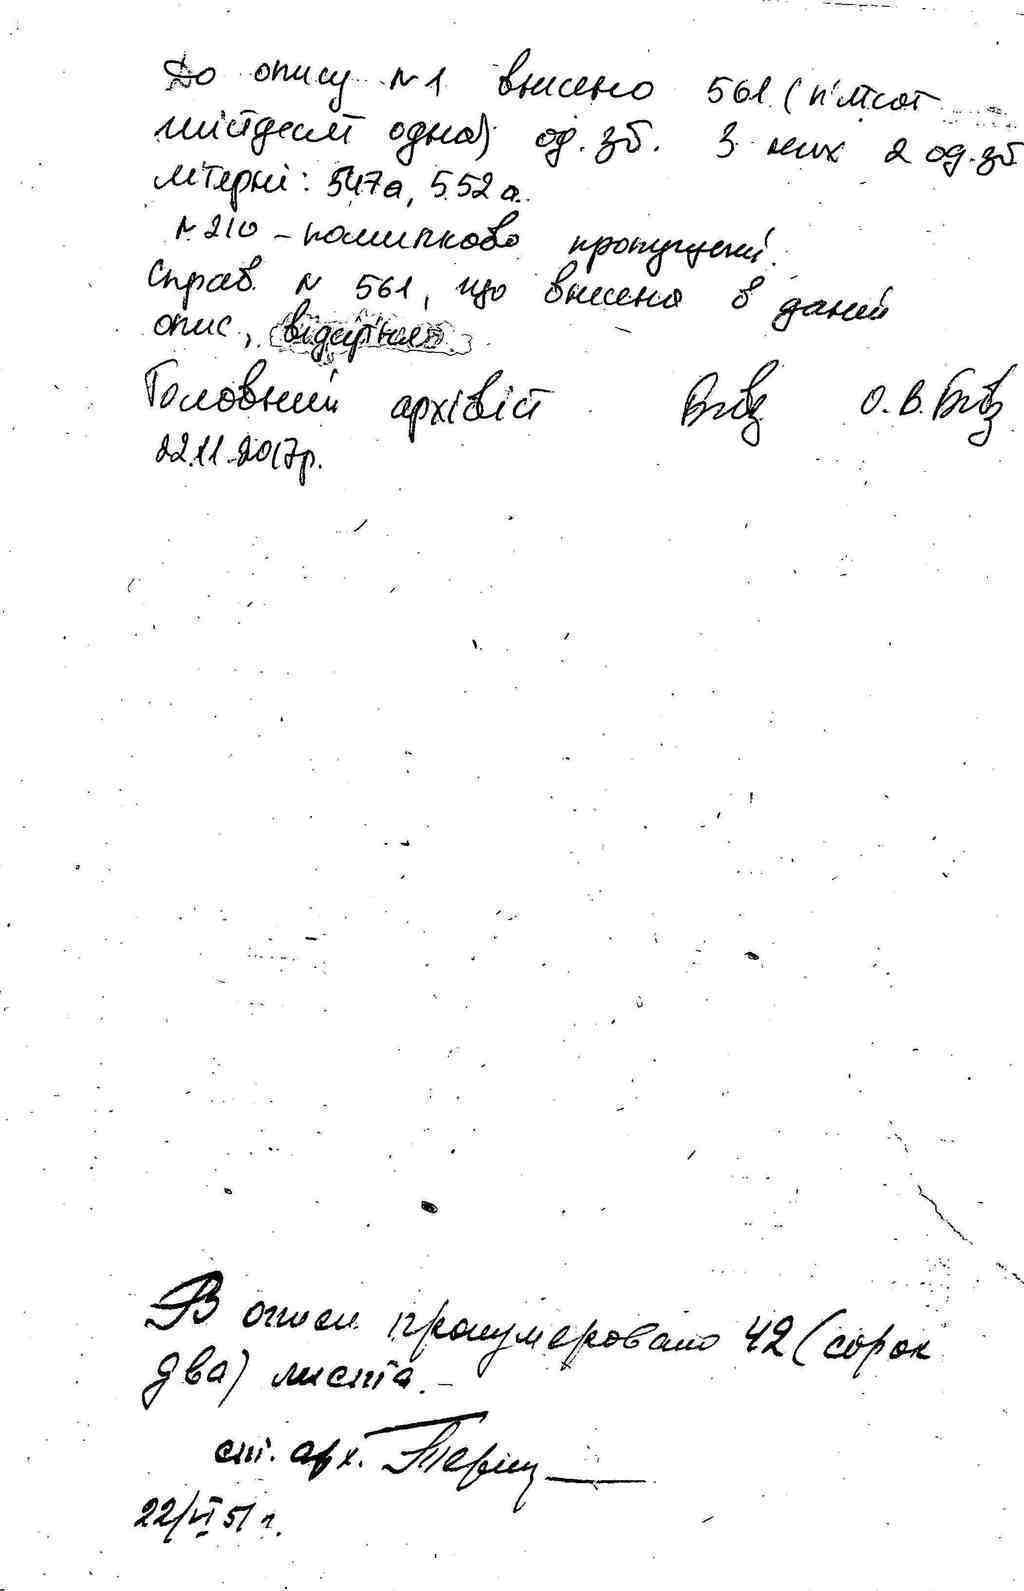 До опису №1 внесено 561 (п'ятсот
шістдесят одна) од. зб. З них 2 од. зб
літерні: 547а, 552а.
№ 210 – помилково пропущені.
Справ. № 561, що внесена в даний
опис, відсутня.
Головний архівіст О. В.
22.11.2017р.
В описи пронумеровано 42 (сорок
два) листа. –
ст. арх.
22/VI 51 г.